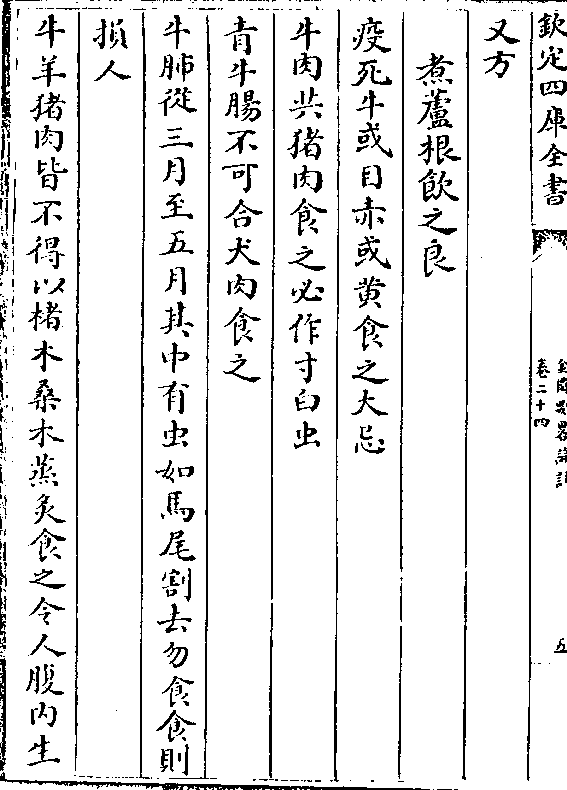 欽定四庫全書
金匱要略論註
卷二十四
五
又方
煮蘆根飲之良
疫死牛或目赤或黄食之大忌
牛肉共猪肉食之必作寸白虫
青牛腸不可合犬肉食之
牛肺從三月至五月其中有虫如馬尾割去勿食食則
損人
牛羊猪肉皆不得以楮木桑木蒸炙食之令人腹内生